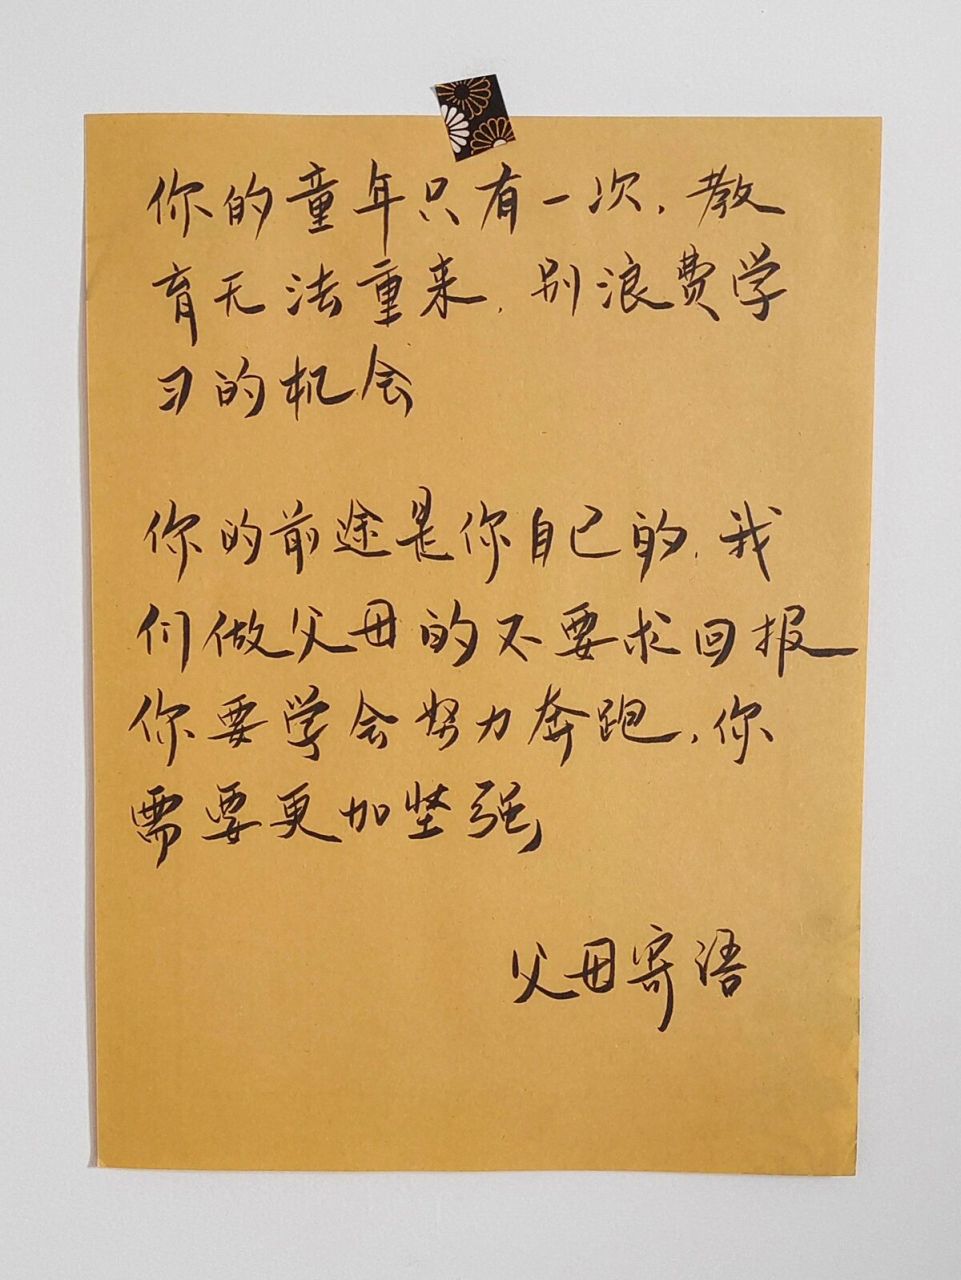 你的童年只有一次,教
育无法重来,别浪费学
习的机会
你的前途是你自己的,我
们做父母的不要求回报
你要学会努力奔跑,你
需要更加坚强
父母寄语